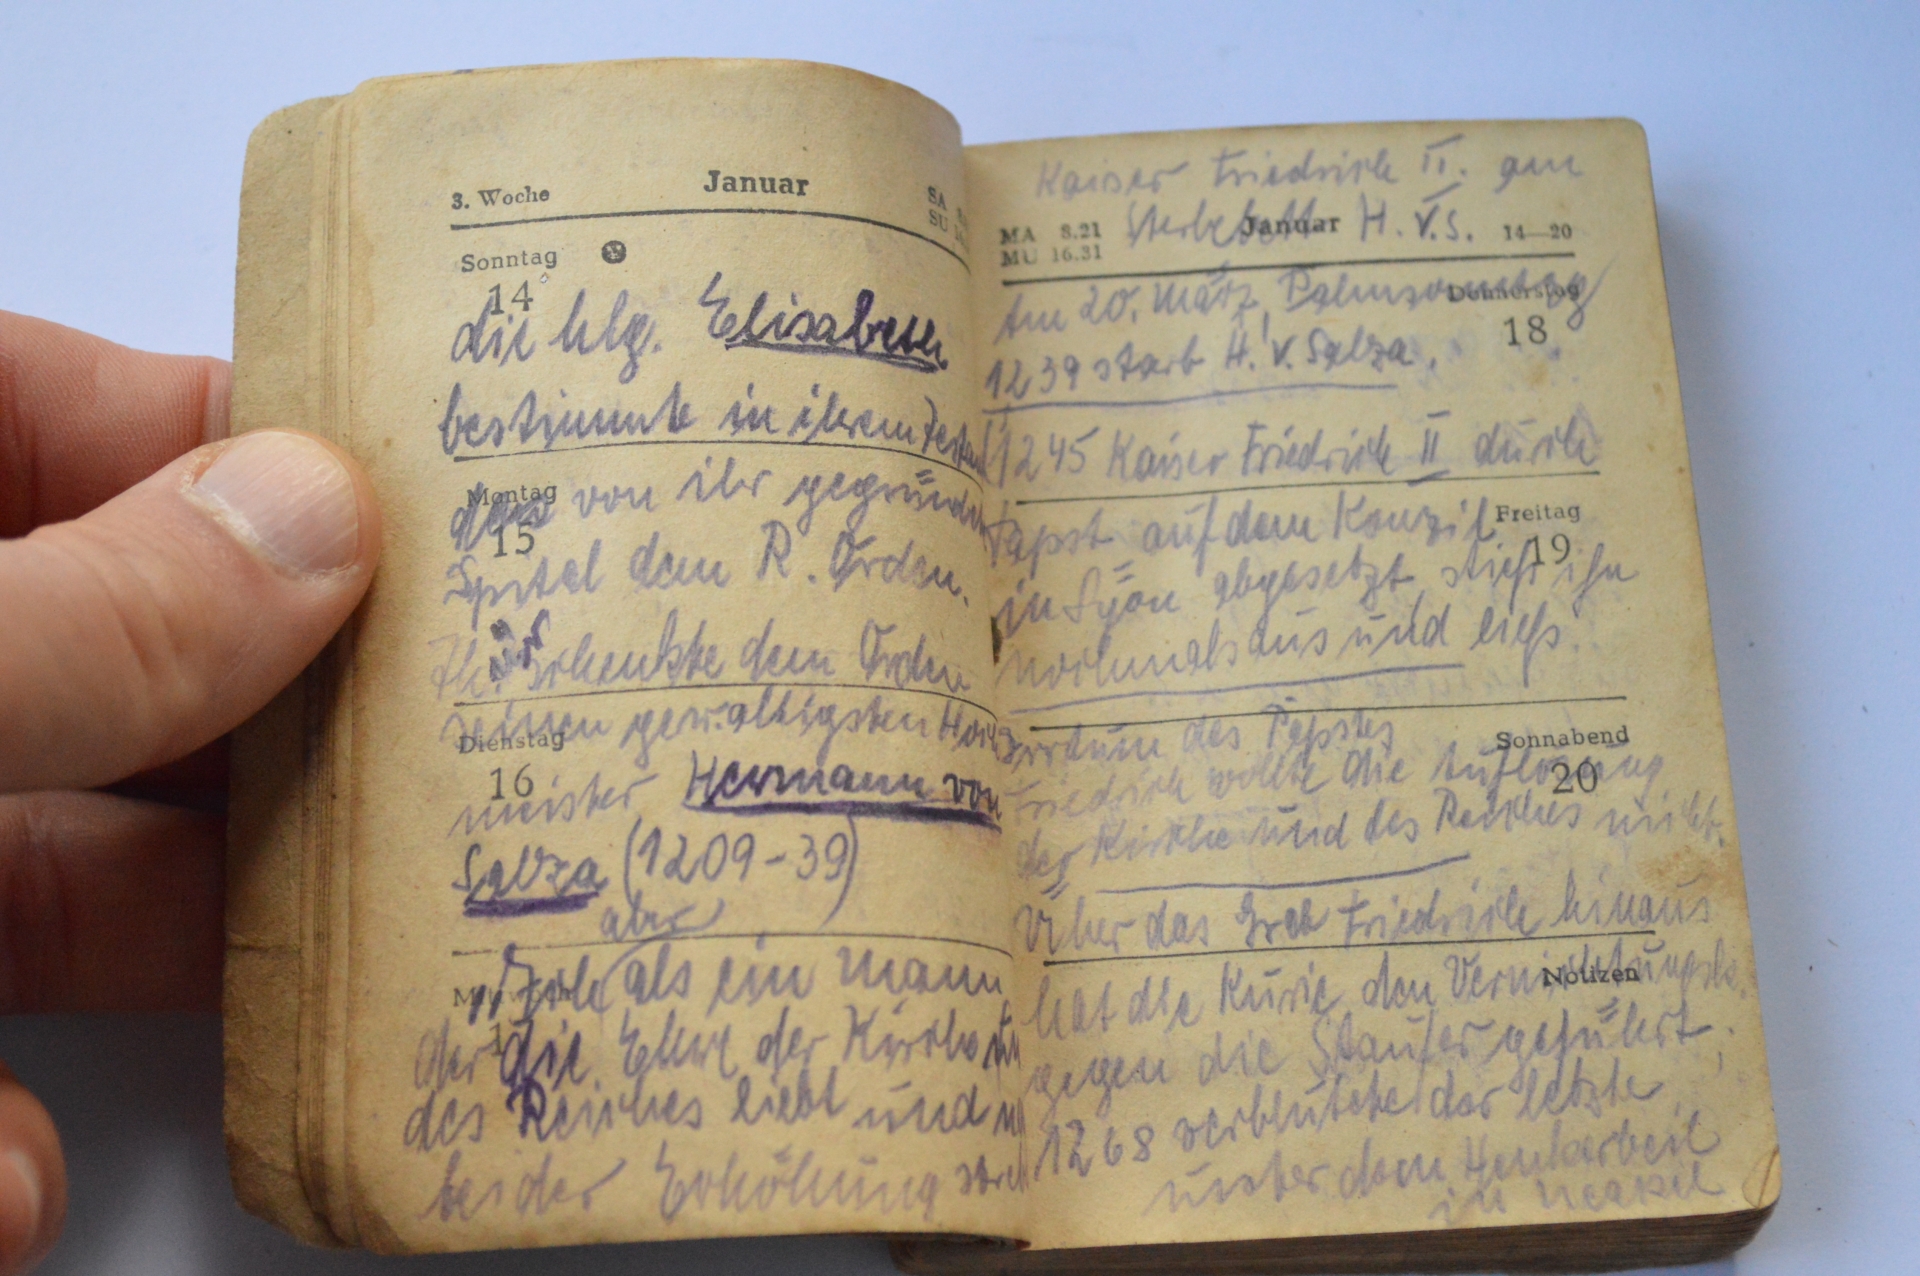 3. Woche Januar SA
SU
Sonntag
14
die hlg. Elisabeth
bestimmte in ihrem Testam
Montag
von ihr gegründe
15
Spital dem R. Orden.
Th. schenkte dem Orden
seinen gewaltigsten Hoch
Dienstag
16
meister Hermann von
Salza (1209-39)
aber
Ich als ein Mann
der die Ehre der Kirche u
des Reiches liebt und
beider Erhöhung
Kaiser Friedrich II. am
Sterbebett H. v. S.
MA 8.21 Januar 14—20
MU 16.31
Am 20. März, Palmsonntag
Donnerstag
18
1239 starb H. v. Salza.
1245 Kaiser Friedrich II durch
Papst auf dem Konzil
Freitag
19
in Lyon abgesetzt stiess ihn
nochmals aus und liess.
Irrtum des Papstes
Sonnabend
20
Friedrich wollte die Auflösung
der Kirche und des Reiches nicht.
Über das Grab Friedrich hinaus
Notizen
hat die Kurie den
gegen die Staufer geführt,
1268 verblutete der letzte
unter dem Henkerbeil
in Neapel